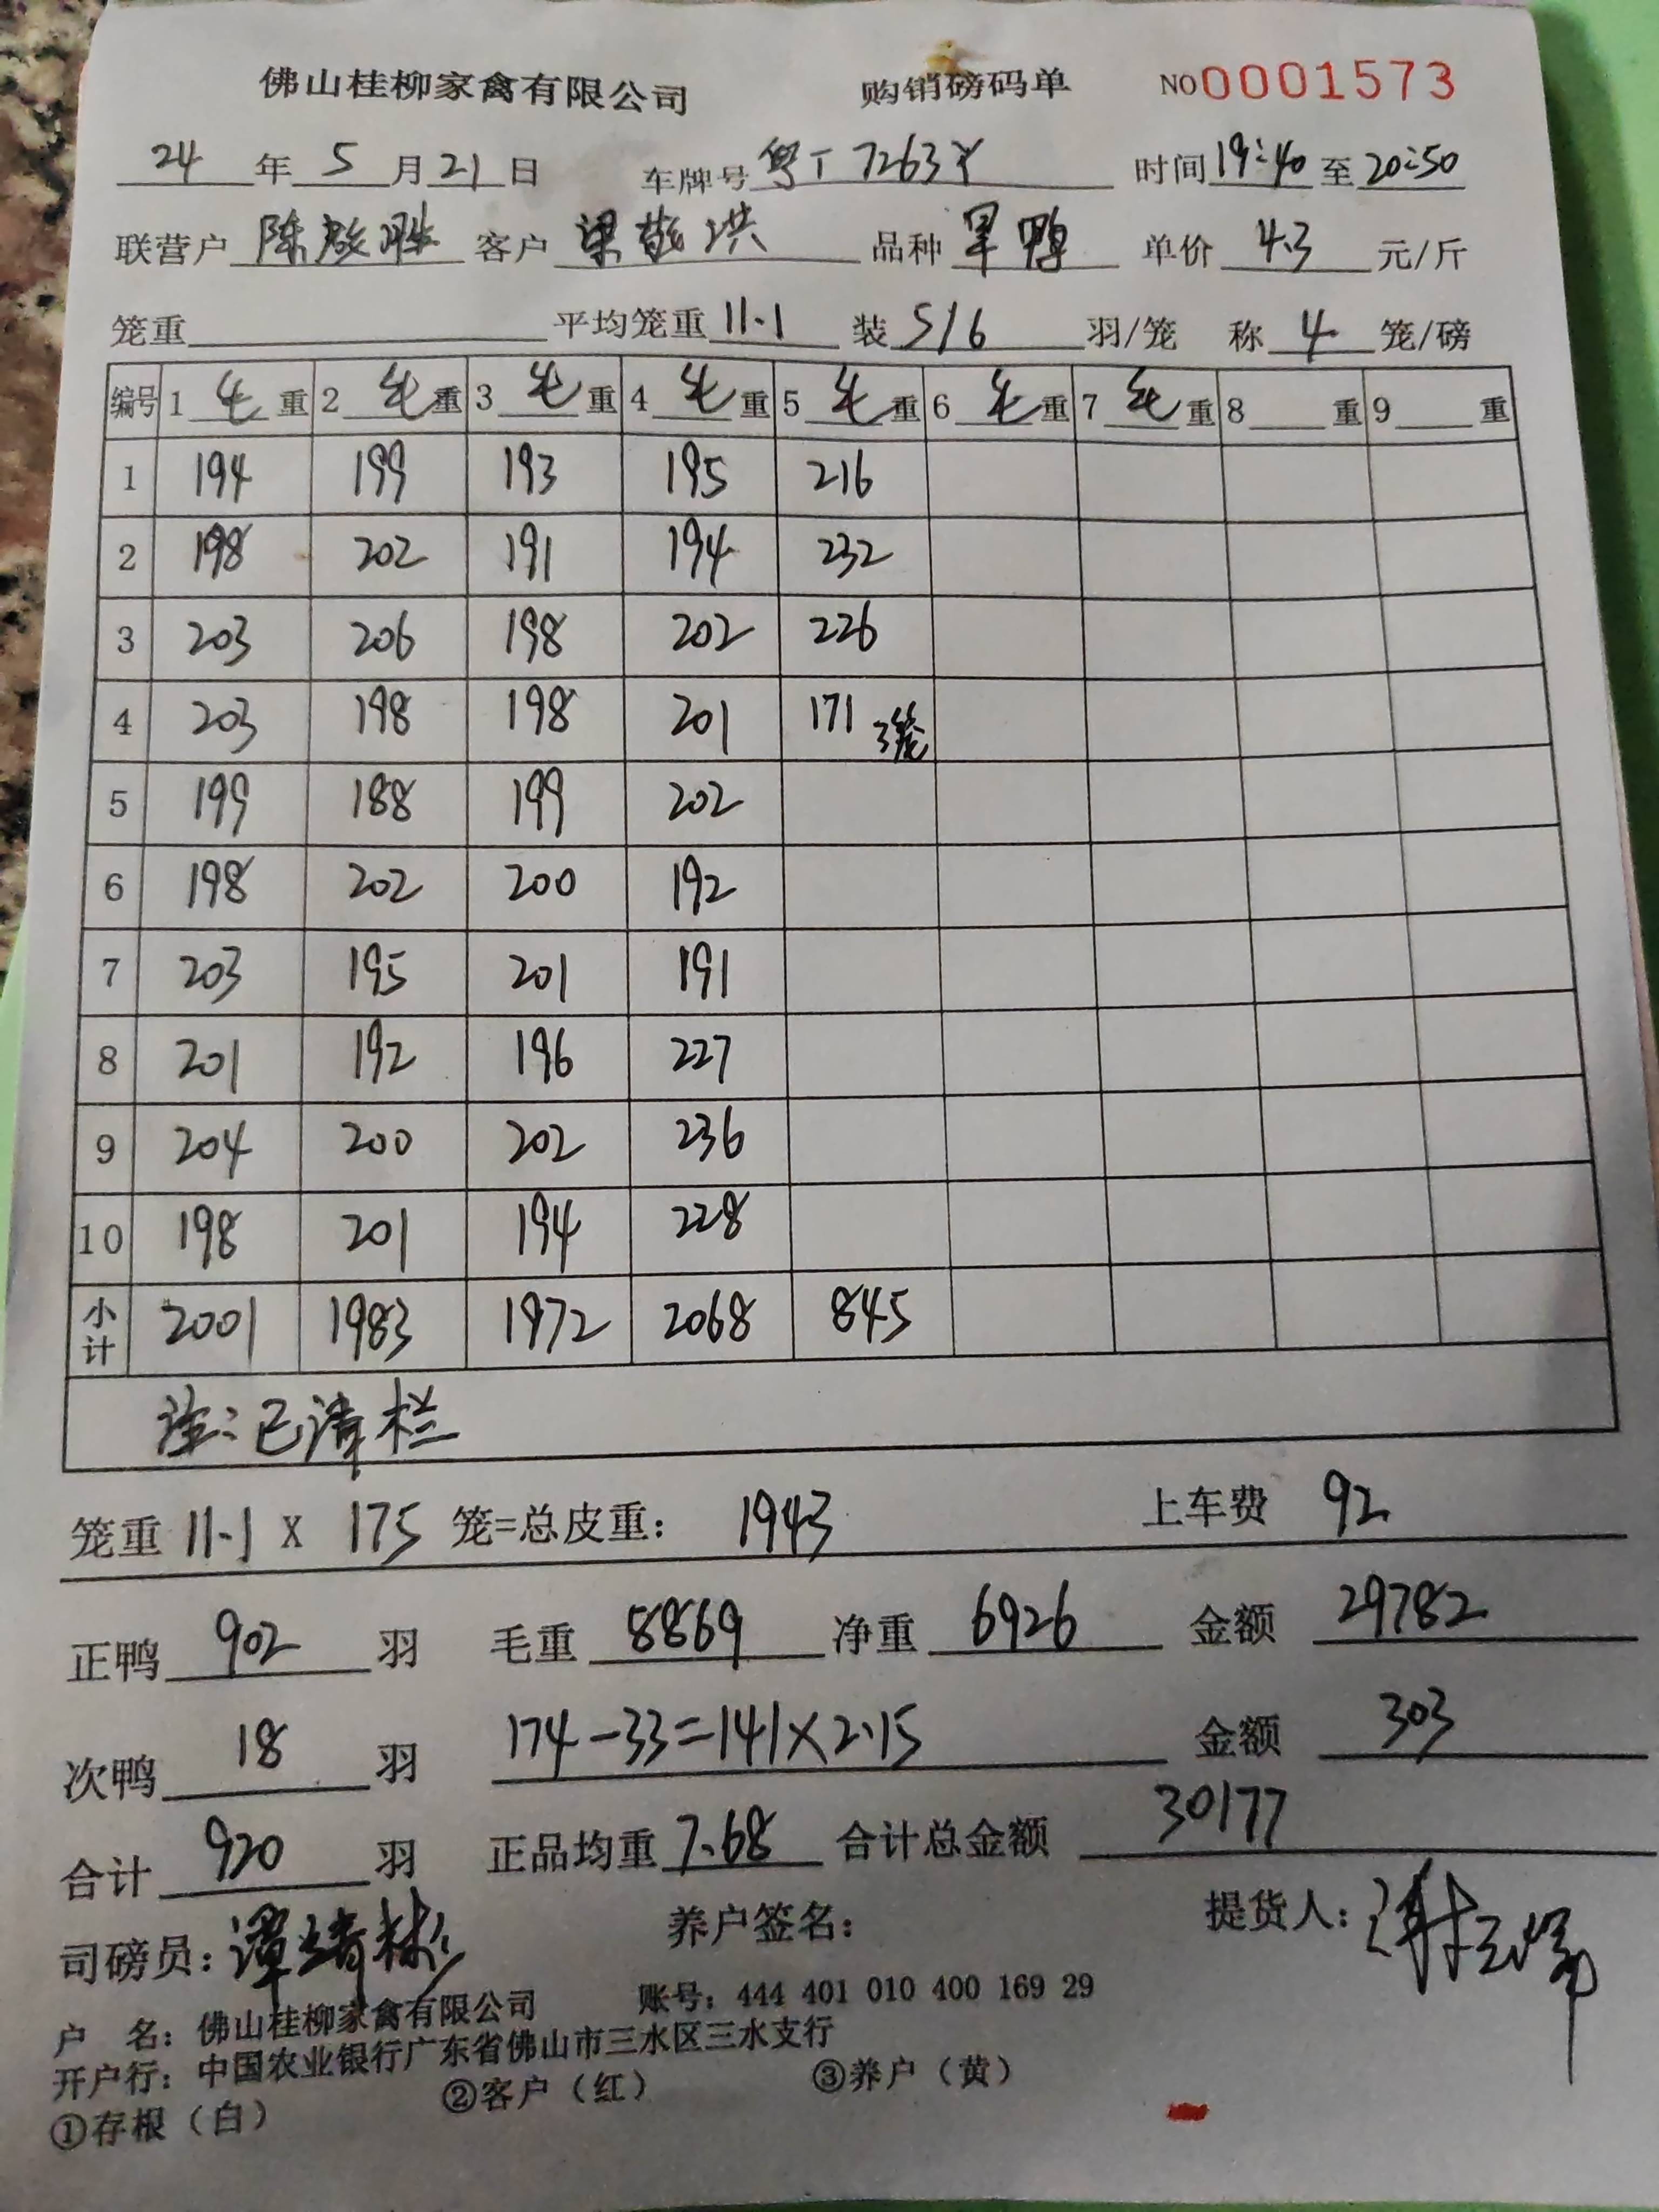 佛山桂柳家禽有限公司 购销磅码单 NO0001573
24 年 5 月 21 日 车牌号 粤T 7263Y 时间 19:40 至 20:50
联营户 陈啟胜 客户 梁敬洪 品种 旱鸭 单价 4.3 元/斤
笼重 平均笼重 11.1 装 5/6 羽/笼 称 4 笼/磅
编号 1 毛 重 2 毛 重 3 毛 重 4 毛 重 5 毛 重 6 毛 重 7 毛 重 8 重 9 重
1 194 199 193 195 216
2 198 202 191 194 232
3 203 206 198 202 226
4 203 198 198 201 171 3笼
5 199 188 199 202
6 198 202 200 192
7 203 195 201 191
8 201 192 196 227
9 204 200 202 236
10 198 201 194 228
小计 2001 1983 1972 2068 845
注:已清栏
笼重 11.1 X 175 笼=总皮重: 1943 上车费 92
正鸭 902 羽 毛重 8869 净重 6926 金额 29782
次鸭 18 羽 174-33=141×2.15 金额 303
合计 920 羽 正品均重 7.68 合计总金额 30177
司磅员:谭靖彬 养户签名: 提货人:
户 名:佛山桂柳家禽有限公司 账号:444 401 010 400 169 29
开户行:中国农业银行广东省佛山市三水区三水支行
①存根(白) ②客户(红) ③养户(黄)